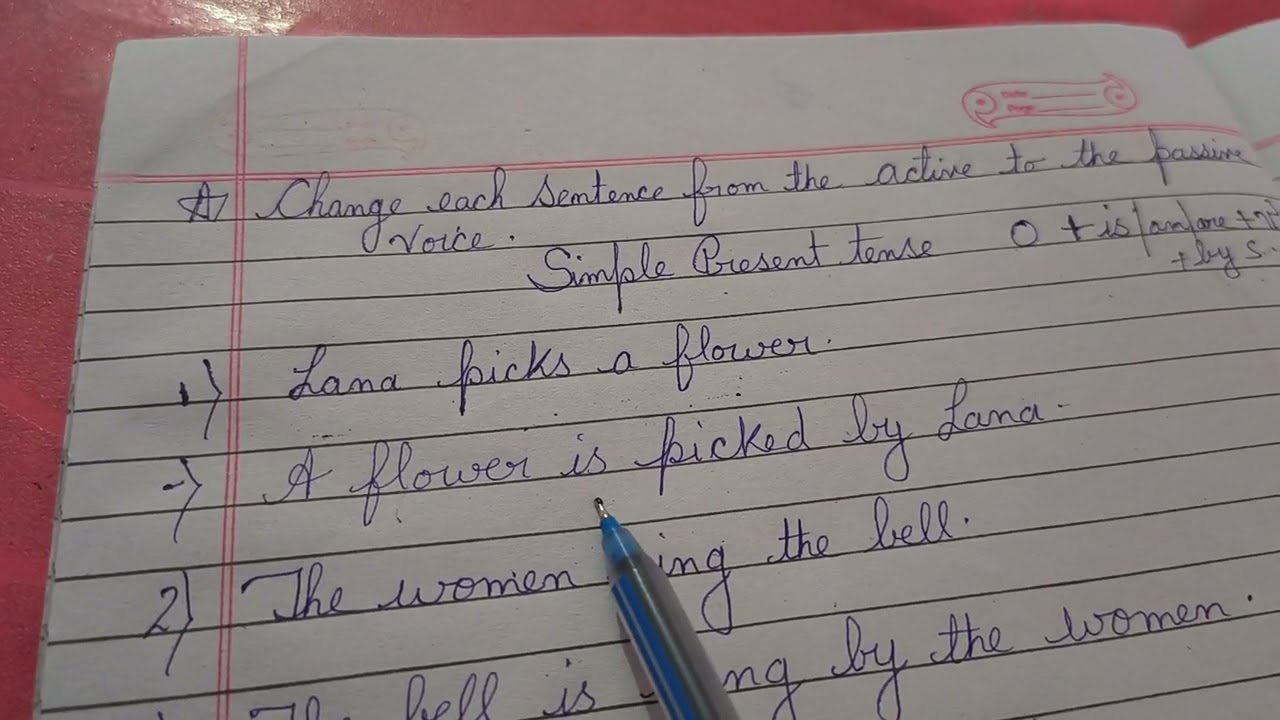 A) Change each sentence from the active to the passive
voice.
Simple Present tense O + is/am/are +
+ by s.
1) Lana picks a flower.
→ A flower is picked by Lana.
2) The women the bell.
The bell is by the women.